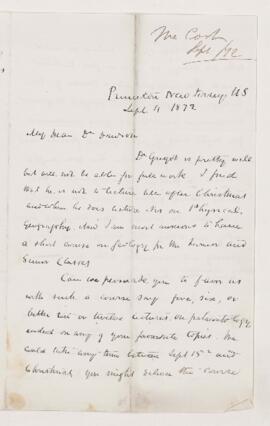 McCosh
Sept /72
Princeton New Jersey, US
Sept 4 1872
My Dear Dr Dawson
Dr Guyot is pretty well
but will not be able for full work. I find
that he is not to lecture till after Christmas
and when he does lecture it is on Physical
Geography. And I am most anxious to have
a short course on Geology for the Junior and
Senior Classes
Can we persuade you to favor us
with such a course say five, six, or
better ten or twelve lectures, on palaeontology
indeed on any of your favourite topics. We
could take any time between Sept 15th and
Christmas. You might deliver the course